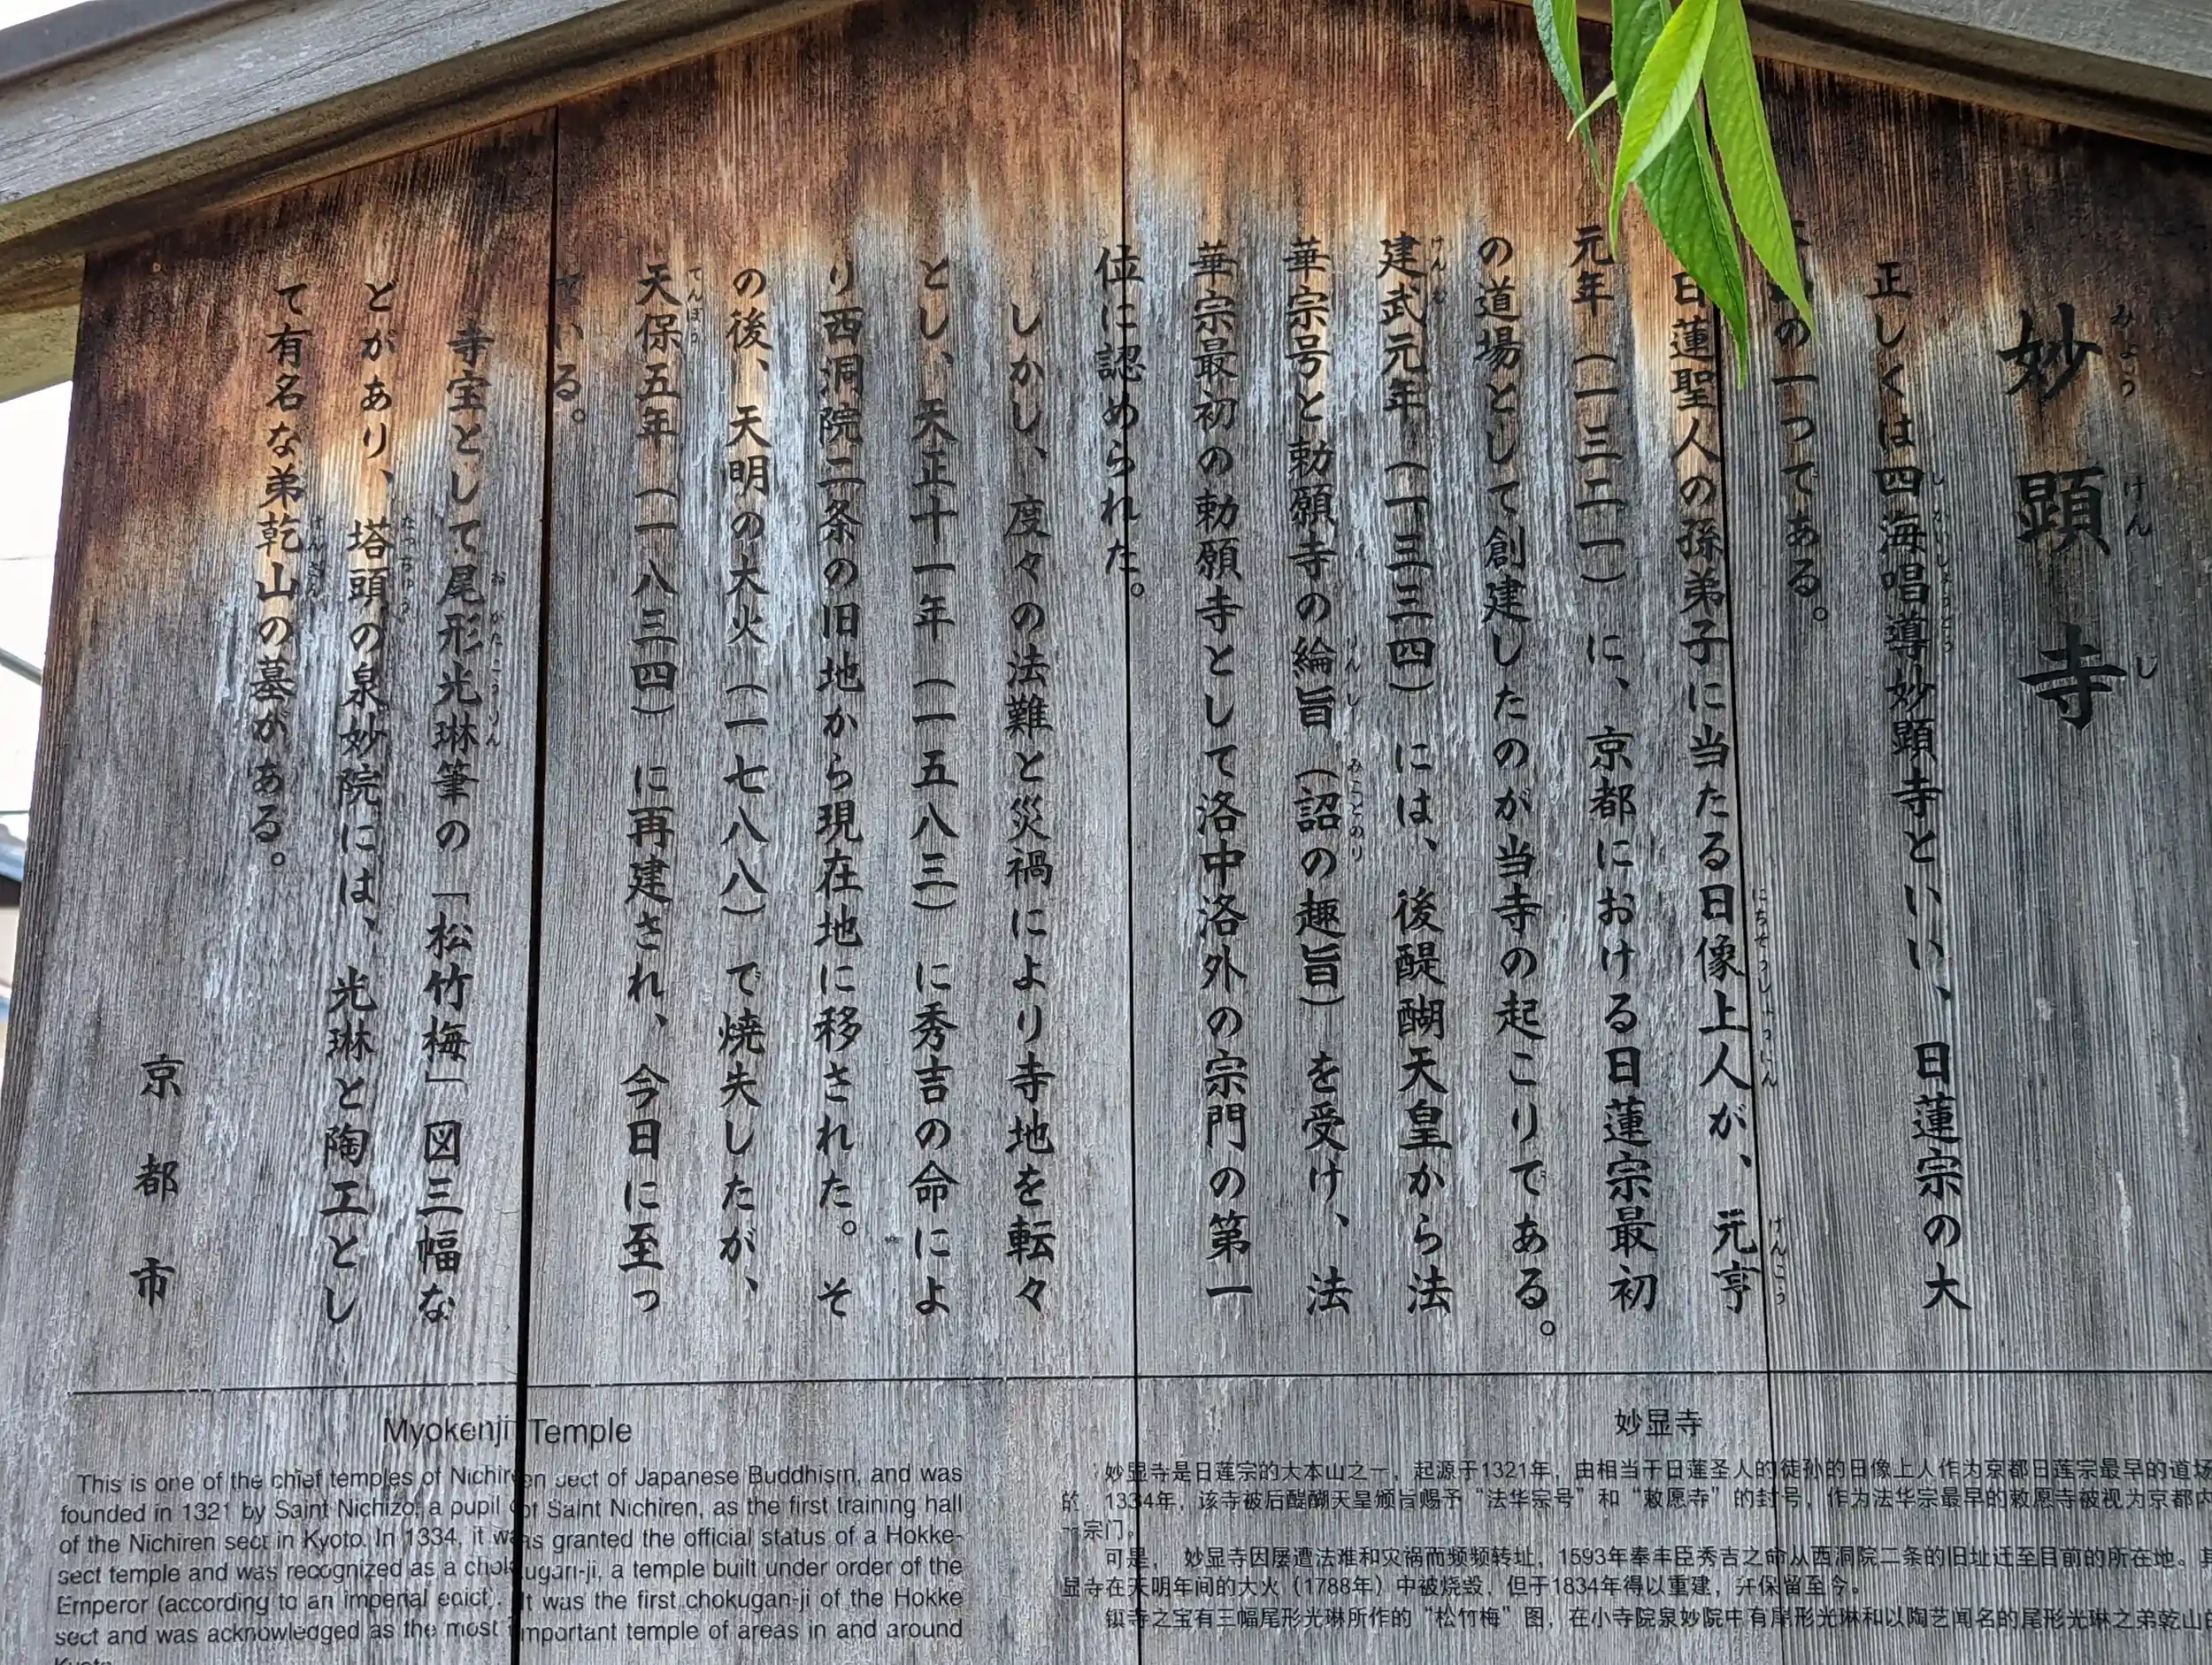 妙顕寺
正しくは四海唱導妙顕寺といい、日蓮宗の大
の一つである。
日蓮聖人の孫弟子に当たる日像上人が、元亨
元年（一三二一）に、京都における日蓮宗最初
の道場として創建したのが当寺の起こりである。
建武元年（一三三四）には、後醍醐天皇から法
華宗号と勅願寺の綸旨（詔の趣旨）を受け、法
華宗最初の勅願寺として洛中洛外の宗門の第一
位に認められた。
しかし、度々の法難と災禍により寺地を転々
とし、天正十一年（一五八三）に秀吉の命によ
り西洞院二条の旧地から現在地に移された。そ
の後、天明の大火（一七八八）で焼失したが、
天保五年（一八三四）に再建され、今日に至っ
ている。
寺宝として尾形光琳筆の「松竹梅」図三幅な
どがあり、塔頭の泉妙院には、光琳と陶工とし
て有名な弟乾山の墓がある。
京都市
Myokenji Temple
This is one of the chief temples of Nichiren sect of Japanese Buddhism, and was
founded in 1321 by Saint Nichizo, a pupil of Saint Nichiren, as the first training hall
of the Nichiren sect in Kyoto. In 1334, it was granted the official status of a Hokke-
sect temple and was recognized as a chokugan-ji, a temple built under order of the
Emperor (according to an imperial edict). It was the first chokugan-ji of the Hokke
sect and was acknowledged as the most important temple of areas in and around
妙显寺
妙显寺是日莲宗的大本山之一，起源于1321年，由相当于日莲圣人的徒孙的日像上人作为京都日莲宗最早的道场
的 1334年，该寺被后醍醐天皇颁旨赐予“法华宗号”和“敕愿寺”的封号，作为法华宗最早的敕愿寺被视为京都内
一宗门。
可是， 妙显寺因屡遭法难和灾祸而频频转址，1593年奉丰臣秀吉之命从西洞院二条的旧址迁至目前的所在地。
显寺在天明年间的大火（1788年）中被烧毁，但于1834年得以重建，并保留至今。
镇寺之宝有三幅尾形光琳所作的“松竹梅”图，在小寺院泉妙院中有尾形光琳和以陶艺闻名的尾形光琳之弟乾山